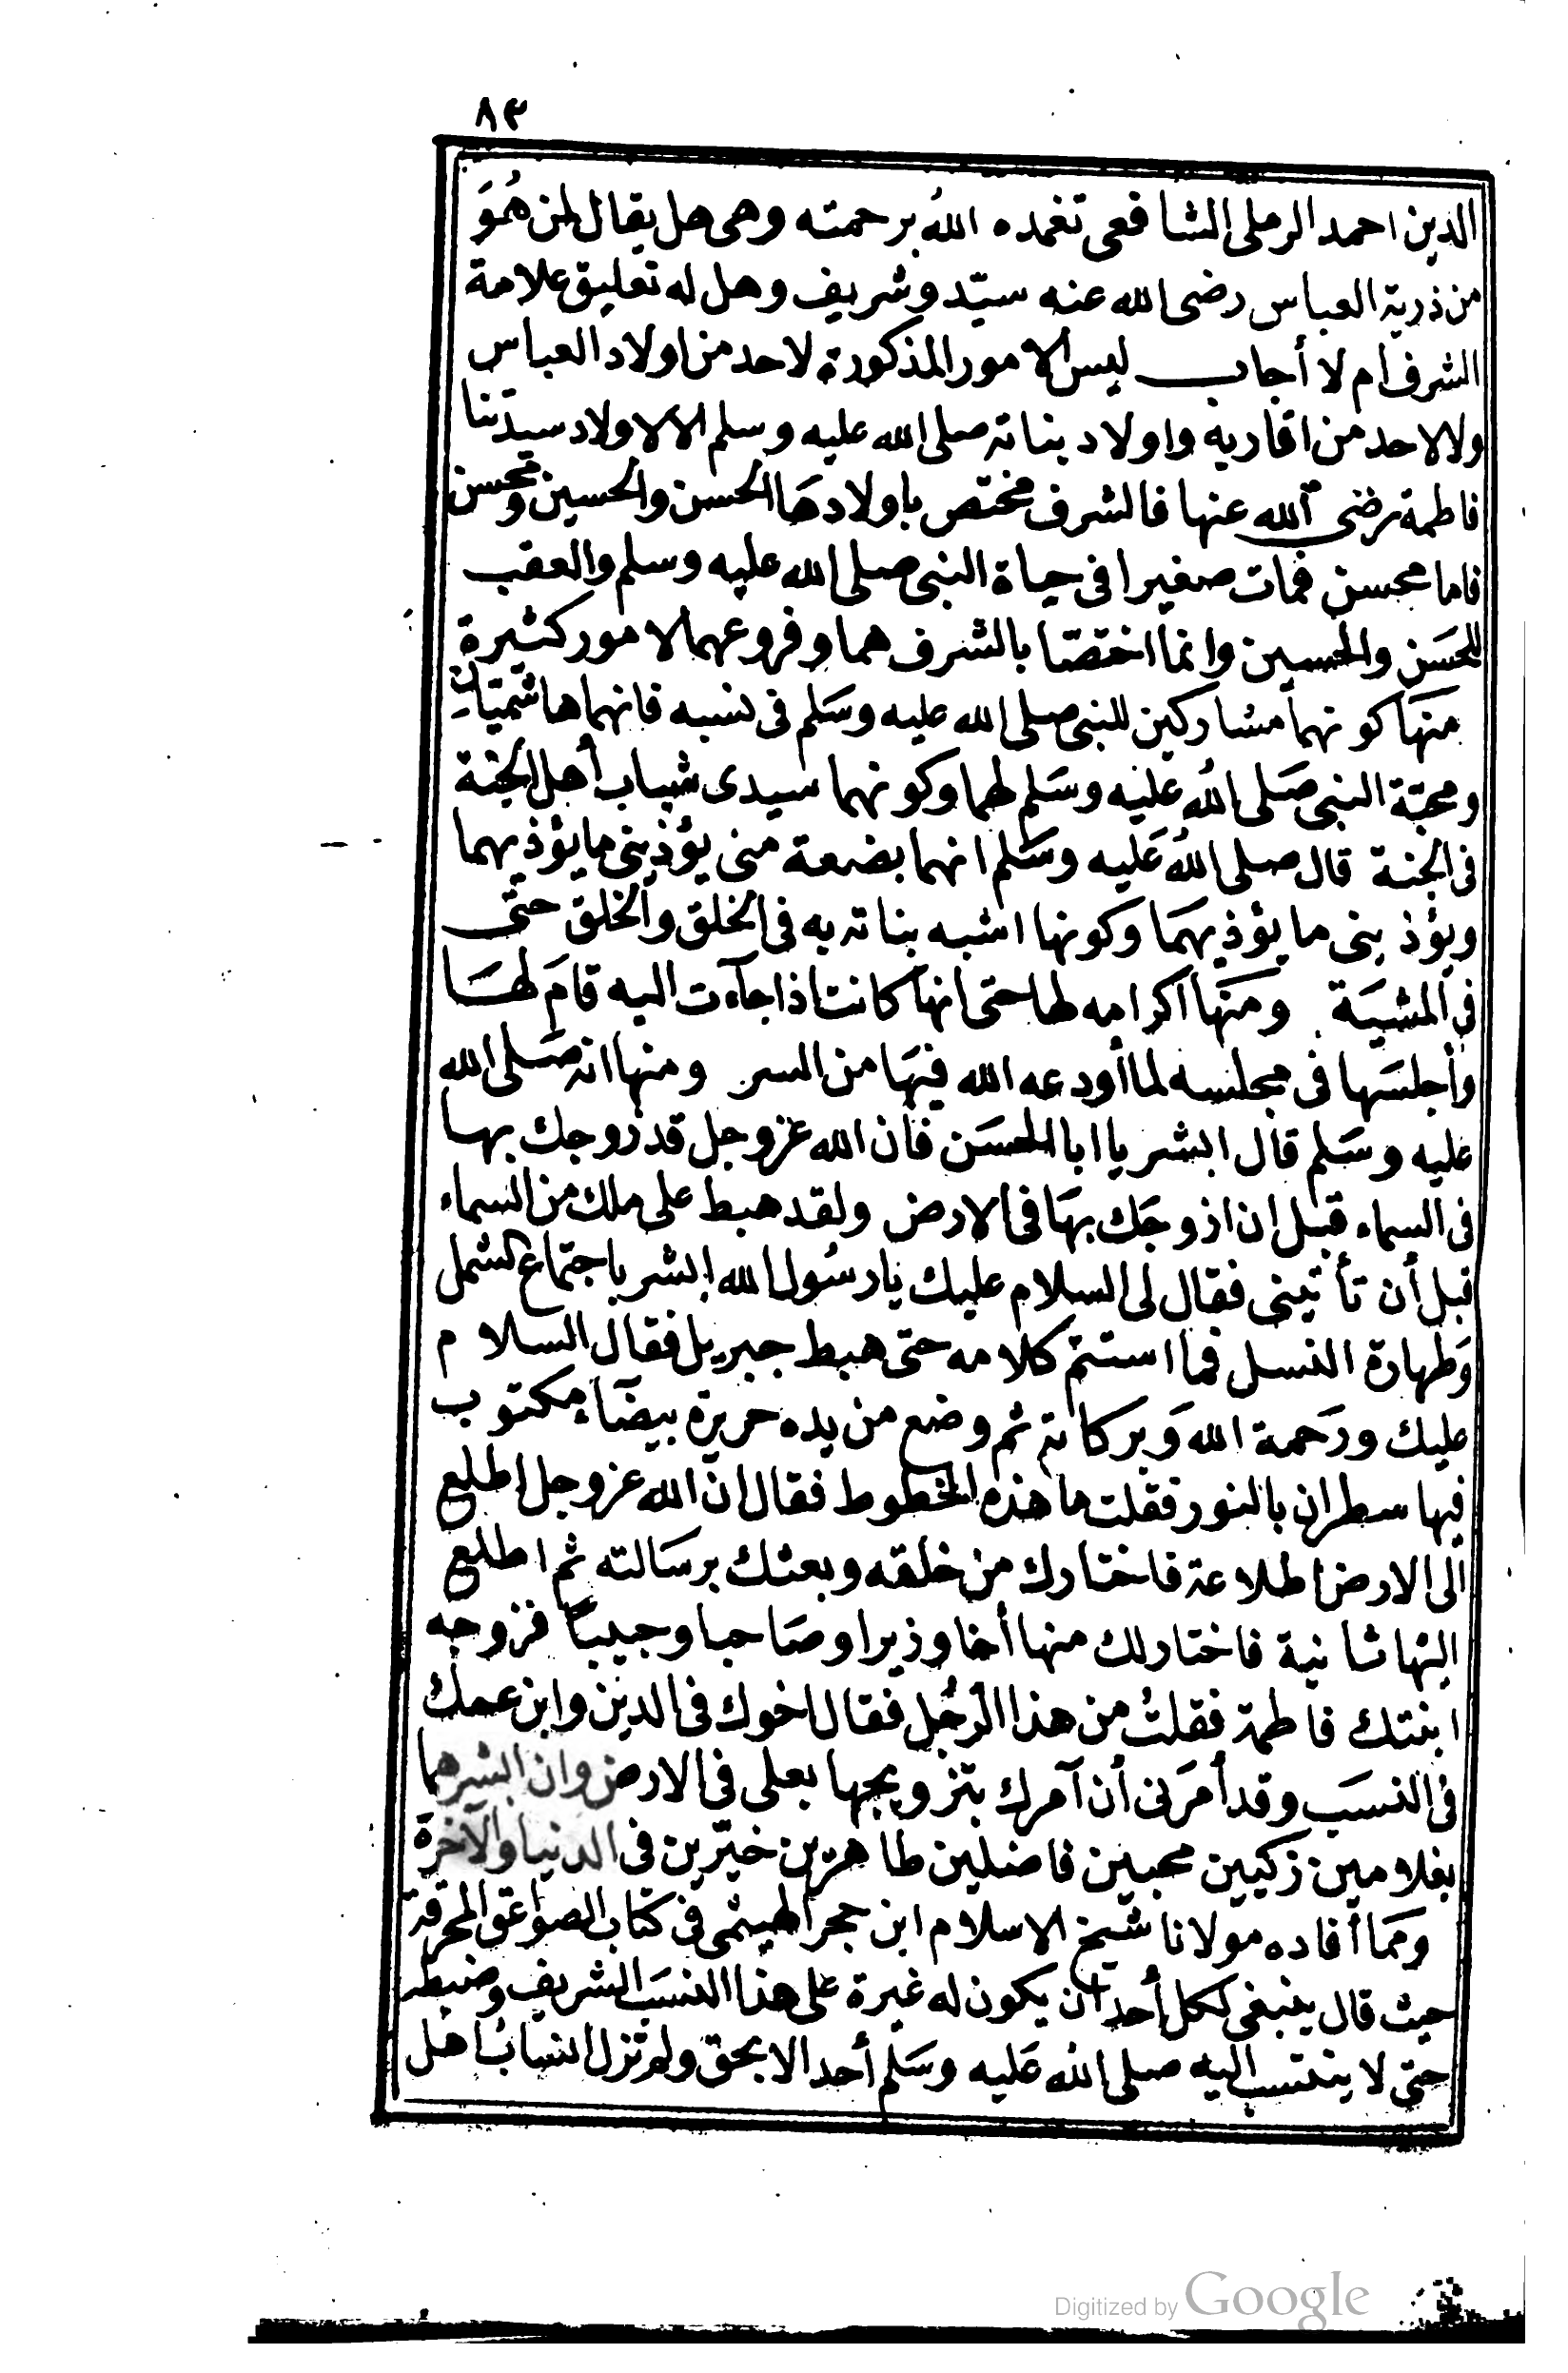 ٨٣
الدين احمد الرملى الشافعى تغمده اللهُ برحمته وهى هل يقال لمن هُوَ
من ذرية العباس رضى الله عنه سيّد وشريف وهل له تعليق علامة
الشرف أم لا أجاب ليس الامور المذكورة لاحد من اولاد العباس
ولا لاحد من اقاربه واولاد بناته صلى الله عليه وسلم الا لاولاد سيدتنا
فاطمة رضى الله عنها فالشرف مختص باولادهَا الحسن والحسين ومحسن
فاما محسن فمات صغيرا فى حياة النبى صلى الله عليه وسلم والعقب
للحسَن والحسين وانما اختصّا بالشرف هما وفروعهما لامور كثيرة
منهَا كونهما مشاركين للنبى صلى الله عليه وسَلم فى نسبه فانهما هاشميّان
ومحبّة النبى صَلى اللهُ عليْه وسَلم لهما وكونهما سيدى شباب أهل الجنة
فى الجنة قال صلى اللهُ عَليه وسَلم انهما بضعة منى يؤذينى ما يؤذيهما
ويؤذينى ما يؤذيهمَا وكونها اشبه بناته به فى الخلق والخلق حتى
فى المشيَة ومنهَا اكرامه لها حتى انها كانت اذا جآءت اليه قامَ لهَا
وأجلسَها فى مجلسه لما أودعه الله فيهَا من السر ومنها انه صَلى الله
عليه وسَلم قال ابشر يا ابا الحسَن فان الله عز وجل قد زوجك بها
فى السماء قبل ان ازوجَك بهَا فى الارض ولقد هبط على ملك من السماء
قبل أن تأتينى فقال لى السلام عليك يا رسُول الله ابشر باجتماع الشمل
وَطهارة النسل فما استتم كلامه حتى هبط جبريل فقال السلام
عليك ورَحمة الله وَبركاته ثم وضع من يده حريرة بيضآء مكتوب
فيها سطران بالنور فقلت ما هذه الخطوط فقال انّ الله عز وجل اطلع
الى الارض اطلاعة فاختارك من خلقه وبعثك برسَالته ثم اطلع
اليهَا ثانية فاختار لك منها أخا وزيرا وصَاحبا وحبيبًا فزوجه
ابنتك فاطمة فقلتُ من هذا الرّجُل فقال اخوك فى الدين وابن عمك
فى النسَب وقد أمرَنى أن آمرك بتزويجها بعلى فى الارض وان ابشرهما
بغلامين زكيين محبين فاضلين طاهرين خيّرين فى الدنيا والآخرة
ومَما أفاده مولانا شيخ الاسلام ابن حجر الهيثمى فى كتاب الصواعق المحرقة
حيث قال ينبغى لكل أحد أن يكون له غيرة على هذا النسَب الشريف وضبطه
حتى لا ينتسب اليه صلى اللهُ عَليه وسَلم أحد الا بحق ولم تزل انسابُ اهل
Digitized by Google